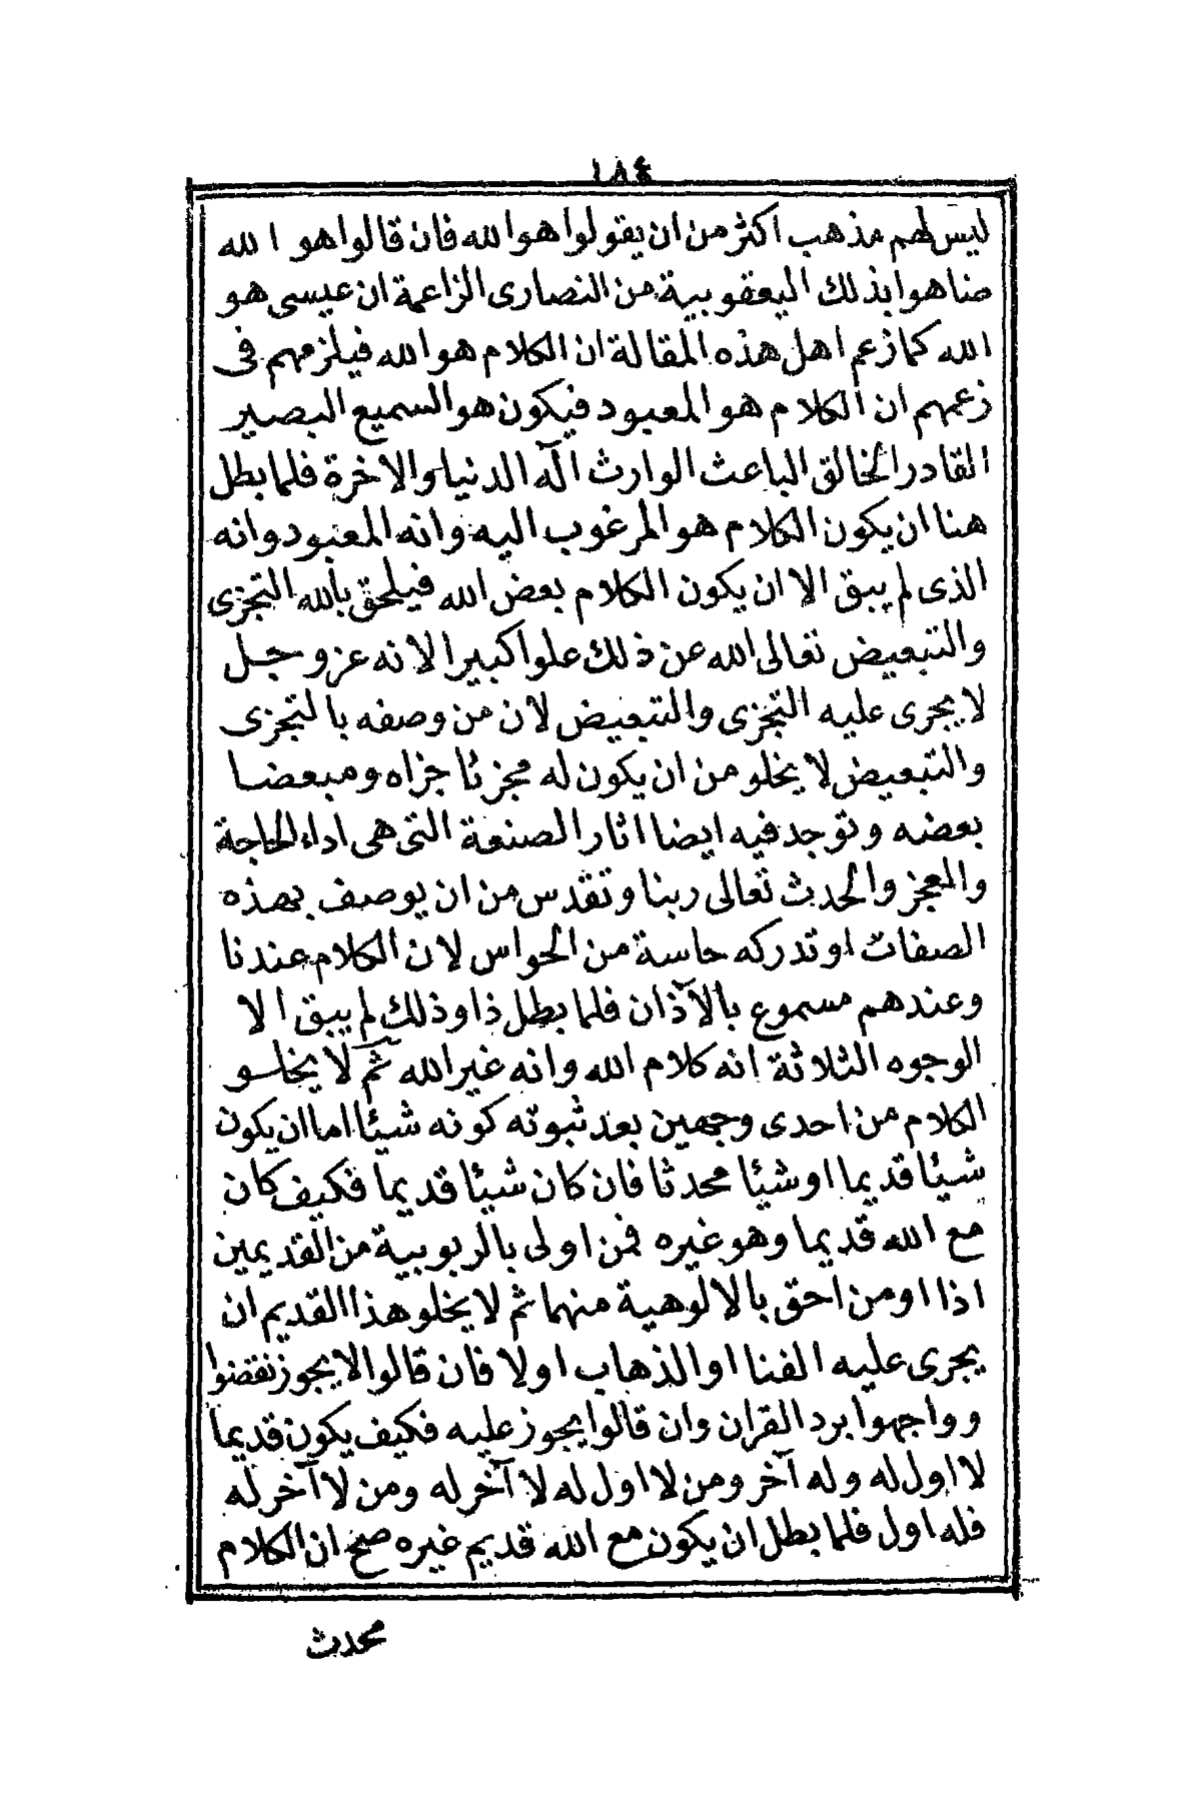 ١٨٤
ليس لهم مذهب اكثر من ان يقولوا هو الله فان قالوا هو الله
ضاهوا بذلك اليعقوبية من النصارى الزاعمة ان عيسى هو
الله كما زعم اهل هذه المقالة ان الكلام هو الله فيلزمهم فى
زعمهم ان الكلام هو المعبود فيكون هو السميع البصير
القادر الخالق الباعث الوارث آله الدنيا والاخرة فلما بطل
هنا ان يكون الكلام هو المرغوب اليه وانه المعبود وانه
الذى لم يبق الا ان يكون الكلام بعض الله فيلحق بالله التجزى
والتبعيض تعالى الله عن ذلك علوا كبيرا لانه عز وجل
لا يجرى عليه التجزى والتبعيض لان من وصفه بالتجزى
والتبعيض لا يخلو من ان يكون له مجزئا جزاه ومبعضا
بعضه وتوجد فيه ايضا اثار الصنعة التى هى اداء الحاجة
والعجز والحدث تعالى ربنا وتقدس من ان يوصف بهذه
الصفات او تدركه حاسة من الحواس لان الكلام عندنا
وعندهم مسموع بالآذان فلما بطل ذا وذلك لم يبق الا
الوجوه الثلاثة انه كلام الله وانه غير الله ثم لا يخلو
الكلام من احدى وجهين بعد ثبوته كونه شيئا اما ان يكون
شيئا قديما او شيئا محدثا فان كان شيئا قديما فكيف كان
مع الله قديما وهو غيره فمن اولى بالربوبية من القديمين
اذا او من احق بالالوهية منهما ثم لا يخلو هذا القديم ان
يجرى عليه الفنا او الذهاب اولا فان قالوا لا يجوز نقضوا
وواجهوا برد القران وان قالوا يجوز عليه فكيف يكون قديما
لا اول له وله آخر ومن لا اول له لا آخر له ومن لا آخر له
فله اول فلما بطل ان يكون مع الله قديم غيره صح ان الكلام
محدث